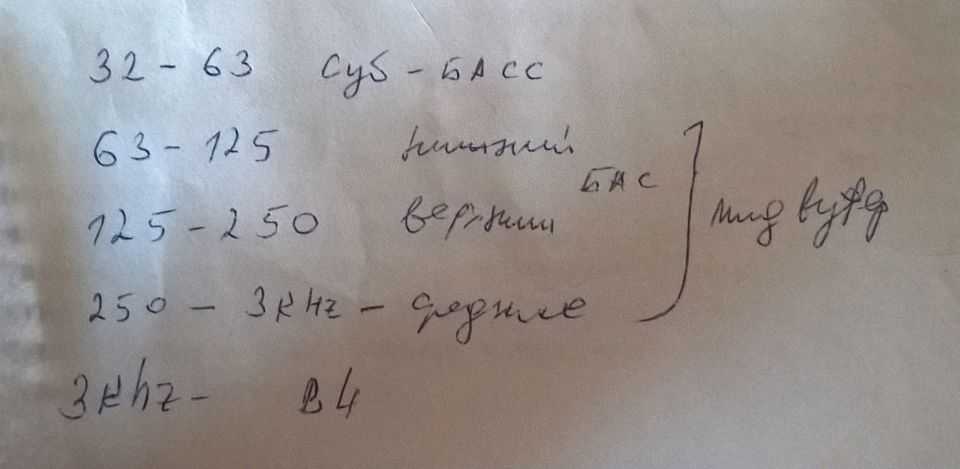 32 - 63 Суб - БАСС
63 - 125 нижний
БАС
125 - 250 верхний
мид вуфер
250 - 3кHz - средние
3кhz - ВЧ